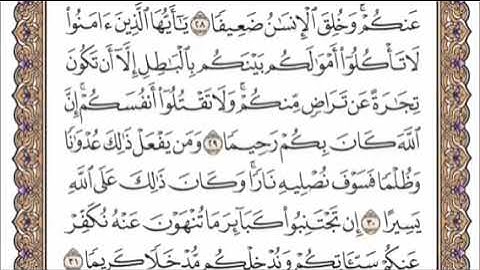 عَنكُمْ ۚ وَخُلِقَ الْإِنسَانُ ضَعِيفًا ٢٨ يَا أَيُّهَا الَّذِينَ ءَامَنُوا
لَا تَأْكُلُوا أَمْوَالَكُم بَيْنَكُم بِالْبَاطِلِ إِلَّا أَن تَكُونَ
تِجَارَةً عَن تَرَاضٍ مِّنكُمْ ۚ وَلَا تَقْتُلُوا أَنفُسَكُمْ ۚ إِنَّ
اللَّهَ كَانَ بِكُمْ رَحِيمًا ٢٩ وَمَن يَفْعَلْ ذَٰلِكَ عُدْوَانًا
وَظُلْمًا فَسَوْفَ نُصْلِيهِ نَارًا ۚ وَكَانَ ذَٰلِكَ عَلَى اللَّهِ
يَسِيرًا ٣٠ إِن تَجْتَنِبُوا كَبَائِرَ مَا تُنْهَوْنَ عَنْهُ نُكَفِّرْ
عَنكُمْ سَيِّئَاتِكُمْ وَنُدْخِلْكُم مُّدْخَلًا كَرِيمًا ٣١